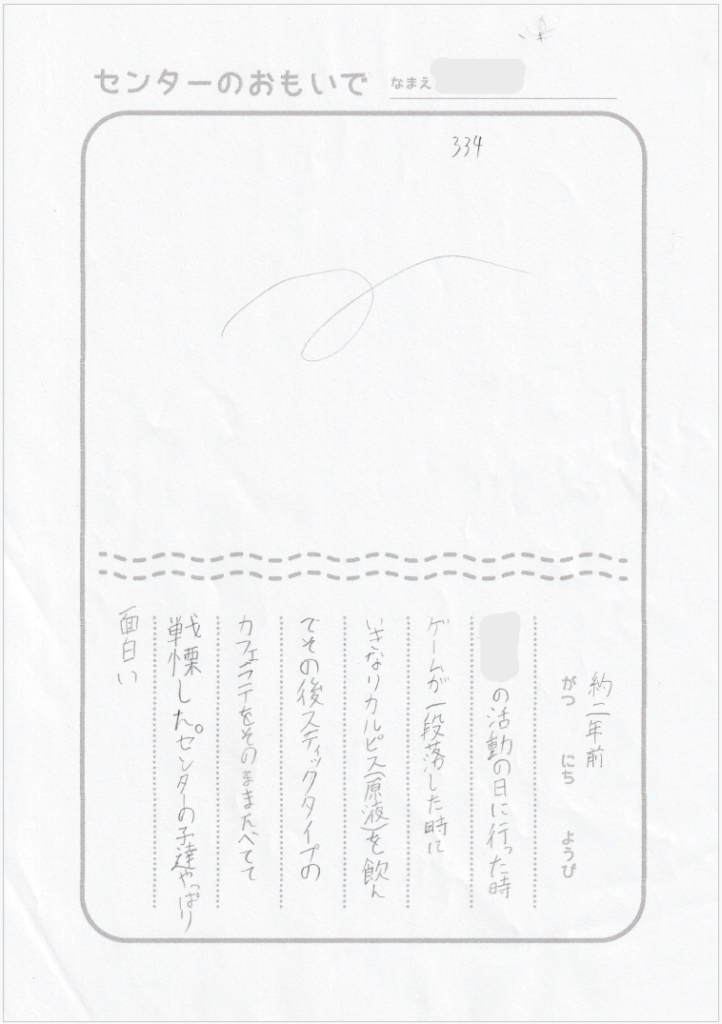 センターのおもいで
なまえ
334
約二年前
がつ にち ようび
の活動の日に行った時
ゲームが一段落した時に
いきなりカルピス(原液)を飲ん
でその後スティックタイプの
カフェラテをそのまま食べてて
戦慄した。センターの子達やっぱり
面白い